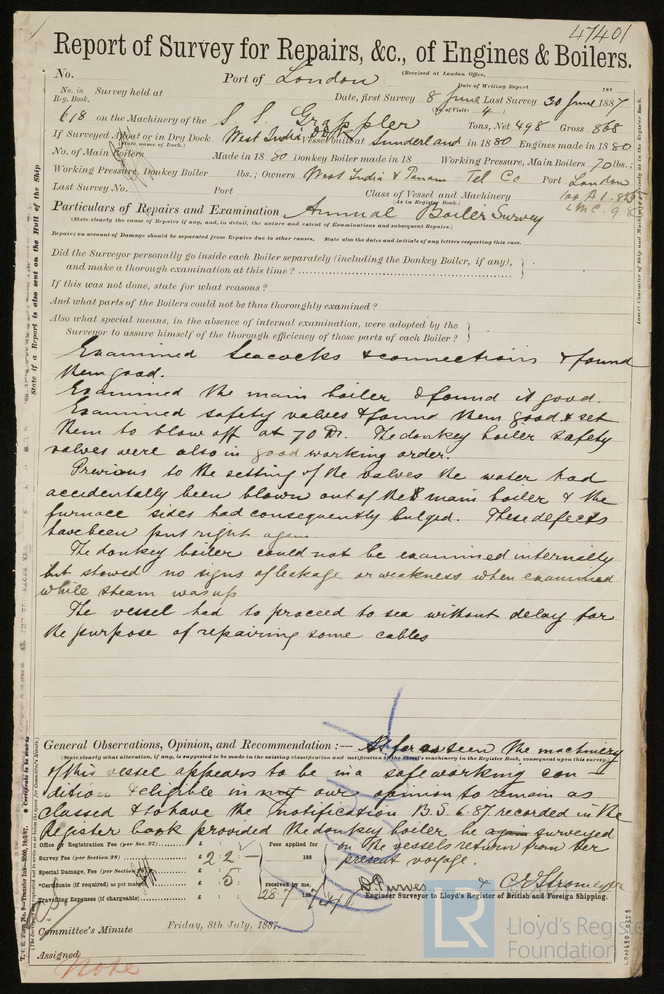 47401
Report of Survey for Repairs, &c., of Engines & Boilers.
(Received at London Office,
No. Port of London
Date of Writing Report 188
No. in Reg. Book. Survey held at Date, first Survey 8 June Last Survey 30 June 1887
(No. of Visits 4)
618 on the Machinery of the S.S. Grappler Tons, Net 498 Gross 868
If Surveyed Afloat or in Dry Dock West India Dks Vessel built at Sunderland in 1880 Engines made in 1880
(State name of Dock.)
No. of Main Boilers Made in 1880 Donkey Boiler made in 18 Working Pressure, Main Boilers 70 lbs.;
Working Pressure, Donkey Boiler lbs.; Owners West India & Panam Tel Co Port London
Last Survey No. Port Class of Vessel and Machinery 100 A1.
(As in Register Book.) LMC. 9.8
Particulars of Repairs and Examination Annual Boiler Survey
(State clearly the cause of Repairs if any, and, in detail, the nature and extent of Examinations and subsequent Repairs.)
Repairs on account of Damage should be separated from Repairs due to other causes. State also the dates and initials of any letters respecting this case.
Did the Surveyor personally go inside each Boiler separately (including the Donkey Boiler, if any),
and make a thorough examination at this time?
If this was not done, state for what reasons?
And what parts of the Boilers could not be thus thoroughly examined?
Also what special means, in the absence of internal examination, were adopted by the
Surveyor to assure himself of the thorough efficiency of those parts of each Boiler?
Examined Seacocks & connections & found
them good.
Examined the main boiler & found it good.
Examined safety valves & found them good & set
them to blow off at 70 lbs. The donkey boiler safety
valves were also in good working order.
Previous to the setting of the valves the water had
accidentally been blown out of the main boiler & the
furnace sides had consequently bulged. These defects
have been put right again.
The donkey boiler could not be examined internally
but showed no signs of leakage or weakness when examined
while steam was up
The vessel had to proceed to sea without delay for
the purpose of repairing some cables
General Observations, Opinion, and Recommendation:— As far as seen the machinery
(State clearly what alteration, if any, is suggested to be made in the existing classification and notification of the vessel's machinery in the Register Book, consequent upon this survey.)
of this vessel appears to be in a safe working con-
dition & eligible in our opinion to remain as
classed & to have the notification B.S. 6.87 recorded in the
Register book provided the donkey boiler be again surveyed
on the vessels return from her
present voyage.
Office or Registration Fee (per Sec. 27) £ : :
Survey Fee (per Section 28) £ 2 2 -
Special Damage, Fee (per Section) £ : :
*Certificate (if required) as per margin £ 5
Travelling Expenses (if chargeable) £ : :
Fees applied for
188
received by me,
28.7 1887
D. Purves & C.E. Stromeyer
Engineer Surveyor to Lloyd's Register of British and Foreign Shipping.
Committee's Minute Friday, 8th July, 1887.
Assigned
Note
State if a Report is also sent on the Hull of the Ship
LR
Lloyd's Register
Foundation